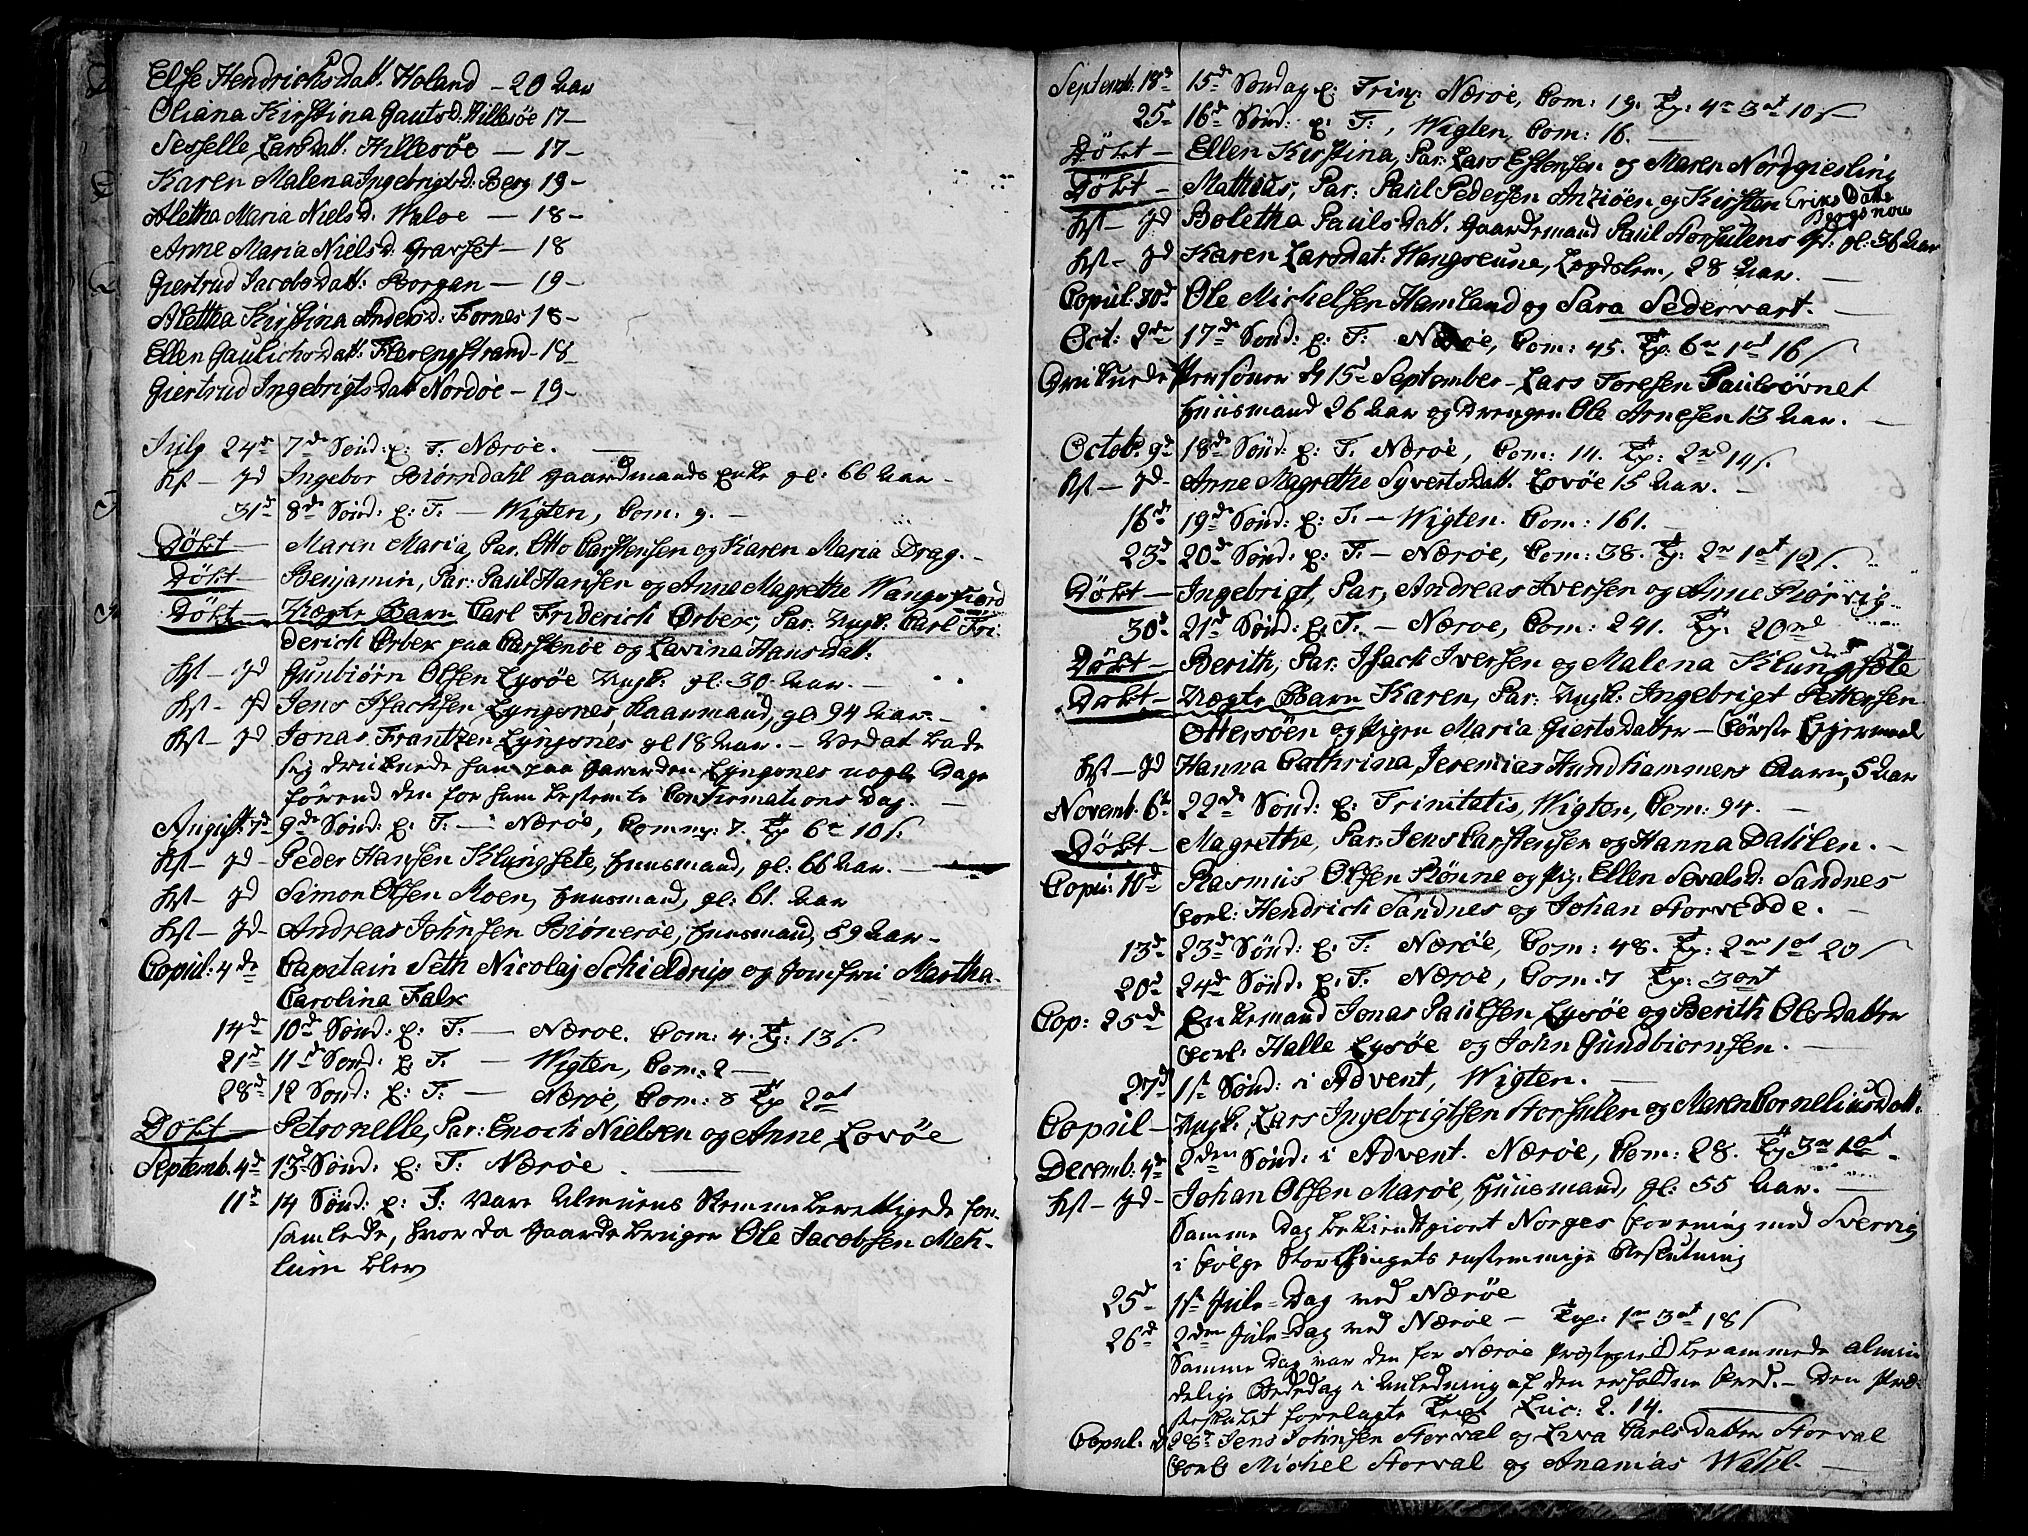 Else Hendrichsdatt. Holand - 20 Aar
Oliana Kirstina Gautsd: Hillesöe 17 -
Sesselle Larsdatt: Hillesöe - 17 -
Karen Malena Ingebrigtsd: Berg 19 -
Aletha Maria Nielsd. Waloe - 18 -
Anne Maria Nielsd. Gravset - 18
Giertrud Jacobsdatt: Borgan - 19 -
Alettha Kirstina Andersd: Fornes 18 -
Ellen Gaulichsdatt: Flerengstrand - 18
Giertrud Ingebrigtsdatt Nordöe - 19 -
July 24de 7de Sönd: p: T. Næröe.
Kst - Jd Ingebor Biörndahl Gaardmands Enke gl: 66 Aar -
31d 8de Sönd: p: T. - Wigten, Com: 9. -
Döbt - Maren Maria, Par. Otto Carstensen og Karen Maria Drag. -
Döbt - Benjamin, Par: Paul Hansen og Anne Magrethe Wangsfiord
Döbt - Uægte Barn Carl Friderich Orbek, Par: Ungk: Carl Fri-
derich Orbek paa Carstenöe og Lavina Hansdatt:
Kst - Jd Gunbiörn Olsen Lysöe Ungk: gl: 30 Aar. -
Kst - Jd Jens Isachsen Lyngsnes Kaarmand, gl 94 Aar. -
Kst - Jd Jonas Frantzen Lyngsnes gl 18 Aar. - Ved at bade
sig druknede han paa Gaarden Lyngsnes nogle Dage
förend den for ham bestemte Confirmations Dag. -
August: 7d 9de Sönd: p: T. - Næröe, Comm: 7. Tp 6 10 s.
Kst - Jd - Peder Hansen Klungsete, Huusmand, gl: 66 Aar. -
Kst - Jd Simon Olsen Moen, Huusmand, gl: 61. Aar
Kst - Jd - Andreas Johnsen Biöneröe, Huusmand, 59 Aar -
Copul: 4de Capitain Seth Nicolaj Schieldrup og Jomfrue Martha
Carolina Falk
14d 10de Sönd: p: T. - Næröe. Com: 4. Tp: 13 s.
21d 11d Sönd: p T. - Wigten, Com: 2 -
28d 12 Sönd: p: T. - Næröe, Com: 8 Tp 2 ort
Döbt - Petronelle, Par: Enoch Nielsen og Anne Lovöe
Septemb. 4d 13d Sönd: p: T: Næröe.
11d 14 Sönd: p: T: vare Almuens Stemmeberettigede for-
samlede, hvor da Gaardbruger Ole Jacobsen Meh-
lum blev
Septemb: 18d 15d Söndag p: Trin: Næröe, Com: 19. Tp: 4 3 ort 10 s
25d 16d Sönd: p: T:, Wigten, Com: 16. -
Döbt - Ellen Kirstina, Par: Lars Estensen og Maren Nordgiesling
Döbt - Mathias, Par: Paul Pedersen Anziöen og Kirsten Eriksdatt
Bergsnov
Kst - Jd Boletha Paulsdatt. Gaardmand Paul Storsulens gl: 36 Aar
Kst - Jd Karen Larsdat: Hangseune, Legdslem, 28 Aar. -
Copul: 30d Ole Michelsen Hamland og Sara Sedervart. -
Oct: 2den 17de Sönd: p: T. Næröe, Com: 45. Tp: 6 1 ort 16 s
Druknede Personer d 15d September - Lars Toresen Paulsövnet
Huusmand 26 Aar og Drengen Ole Arnesen 13 Aar. -
Octob. 9d 18d Sönd: p: T. Næröe, Com: 14. Tp: 2 14 s.
Kst - Jd - Anne Magrethe Syvertsdatt. Lovöe 15 Aar. -
16d 19d Sönd: p: T. - Wigten. Com: 161. -
23d 20d Sönd: p: T. - Næröe, Com: 38. Tp: 2 1 ort 12 s.
Döbt - Ingebrigt, Par, Andreas Iversen og Anne Rörvig
30d 21d Sönd: p: T. - Næröe, Com: 241. Tp: 20
Döbt - Berith, Par. Isach Iversen og Malena Klungsete
Döbt - Uægte Barn Karen, Par: Ungk. Ingebrigt Pettersen
Ottersöen og Pigen Maria Giertsdatter - Förste Leiermaal
Kst - Jd Hanna Cathrina, Jeremias Hundhammers Barn, 5 Aar
Novemb: 6te 22de Sönd: p: Trinitatis, Wigten, Com: 94. -
Döbt - Magrethe, Par: Jens Carstensen og Hanna Dahlen. -
Copu: 10d Rasmus Olsen Rönne og Pig: Ellen Sevalsd: Sandnes
Forl: Hendrich Sandnes og Johan Storvedde. -
13d 23d Sönd: p: T: Næröe, Com: 48. Tp: 2 1 ort 20 s
20d 24d Sönd: p: T. Næröe, Com: 7 Tp: 3 ort
Cop: 25d Enkemand Jonas Paulsen Lysöe og Berith Olsdatter
Forl: Halle Lysöe og John Gundbiornsen. -
27d 1ste Sönd: i Advent, Wigten. -
Copul - Ungk, Lars Ingebrigtsen Storsulen og Maren Corneliusdatt.
Decemb. 4d 2den Sönd: i Advent. Næröe, Com: 28. Tp 3 1 ort.
Kst - Jd - Johan Olsen Maröe, Huusmand, gl: 55 Aar. -
Samme Dag bekiendtgiort Norges Forening med Sverrig
i Fölge Storthingets eenstemmige Beslutning
25d 1ste Jule-Dag ved Næröe
26d 2den Jule-Dag ved Næröe - Tp: 1 3 ort 18 s
Samme Dag var den for Næröe Præstegield berammede almin
delige Bededag i Anledning af den erholdne Fred. - Den Præ-
forelagte Text Luc: 2. 14.
Copul. d 28d Jens Johnsen Storval og Liva Carlsdatter Storval
Forl: Michel Storval og Ananias Wahl. -